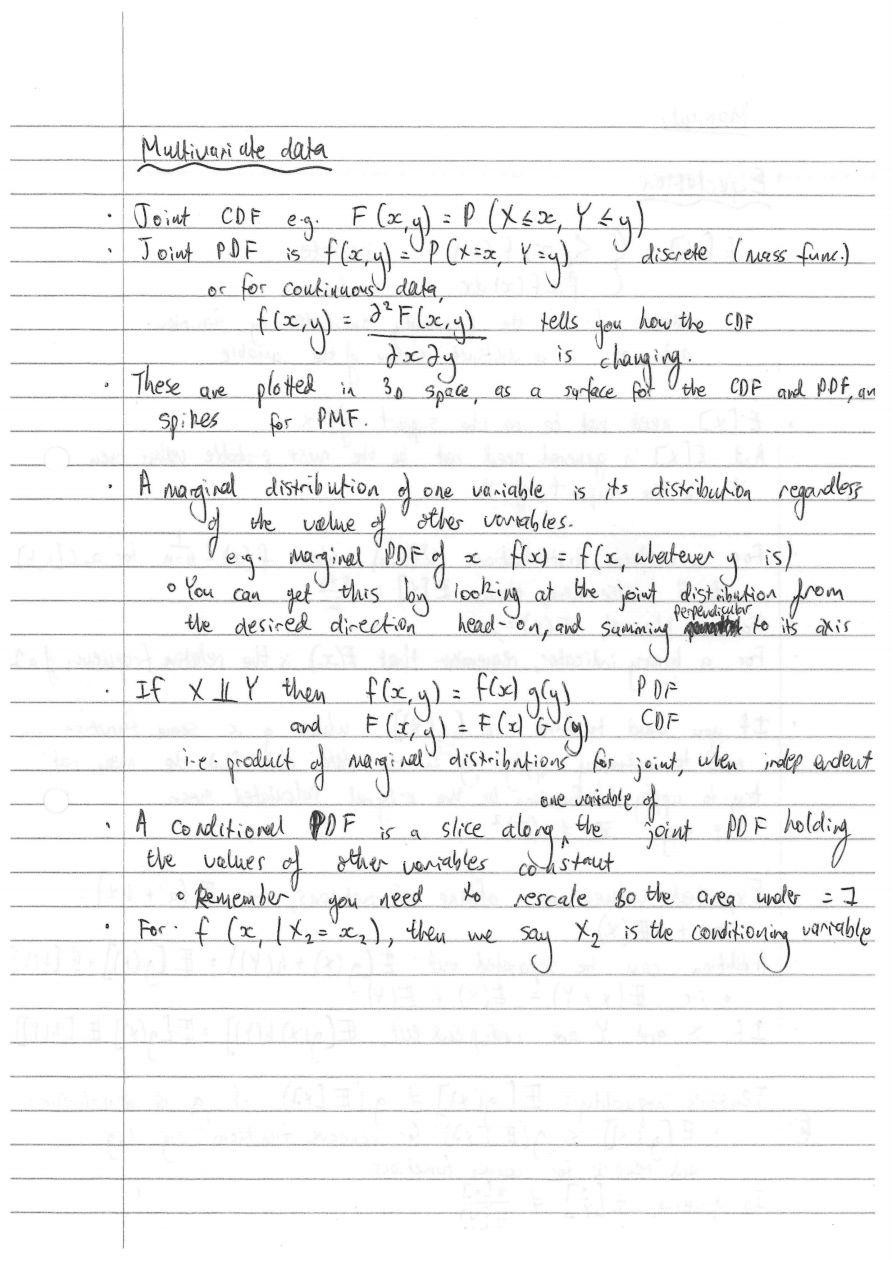 Multivariate data
· Joint CDF e.g. F(x,y) = P(X≤x, Y≤y)
· Joint PDF is f(x,y) = P(X=x, Y=y) discrete (mass func.)
or for continuous data,
f(x,y) = ∂²F(x,y) / ∂x∂y tells you how the CDF
is changing.
· These are plotted in 3D space, as a surface for the CDF and PDF, an
spikes for PMF.
· A marginal distribution of one variable is its distribution regardless
of the value of other variables.
e.g. marginal PDF of x f(x) = f(x, whatever y is)
∘ You can get this by looking at the joint distribution from
the desired direction head-on, and summing perpendicular to its axis
· If X ⫫ Y then f(x,y) = f(x) g(y) PDF
and F(x,y) = F(x) G(y) CDF
i.e. product of marginal distributions for joint, when independent
· A conditional PDF is a slice along one variable of the joint PDF holding
the values of other variables constant
∘ Remember you need to rescale so the area under = 1
· For f(x, | X₂ = x₂), then we say X₂ is the conditioning variable